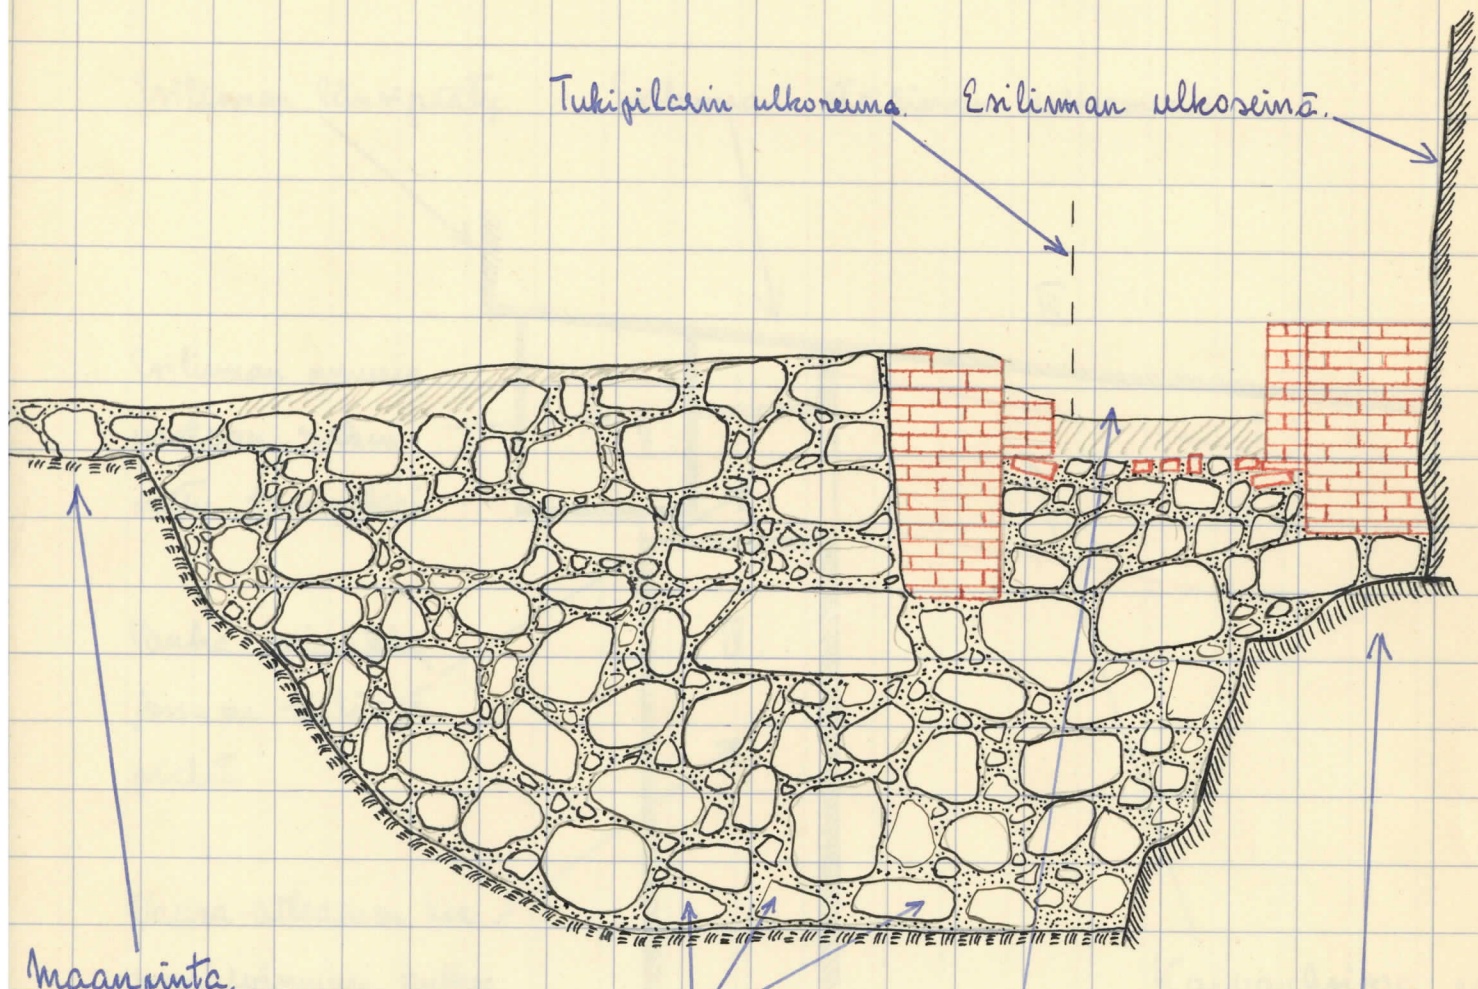 Tukipilarin ulkoreuna. Esilinnan ulkoseinä.
Maanpinta.